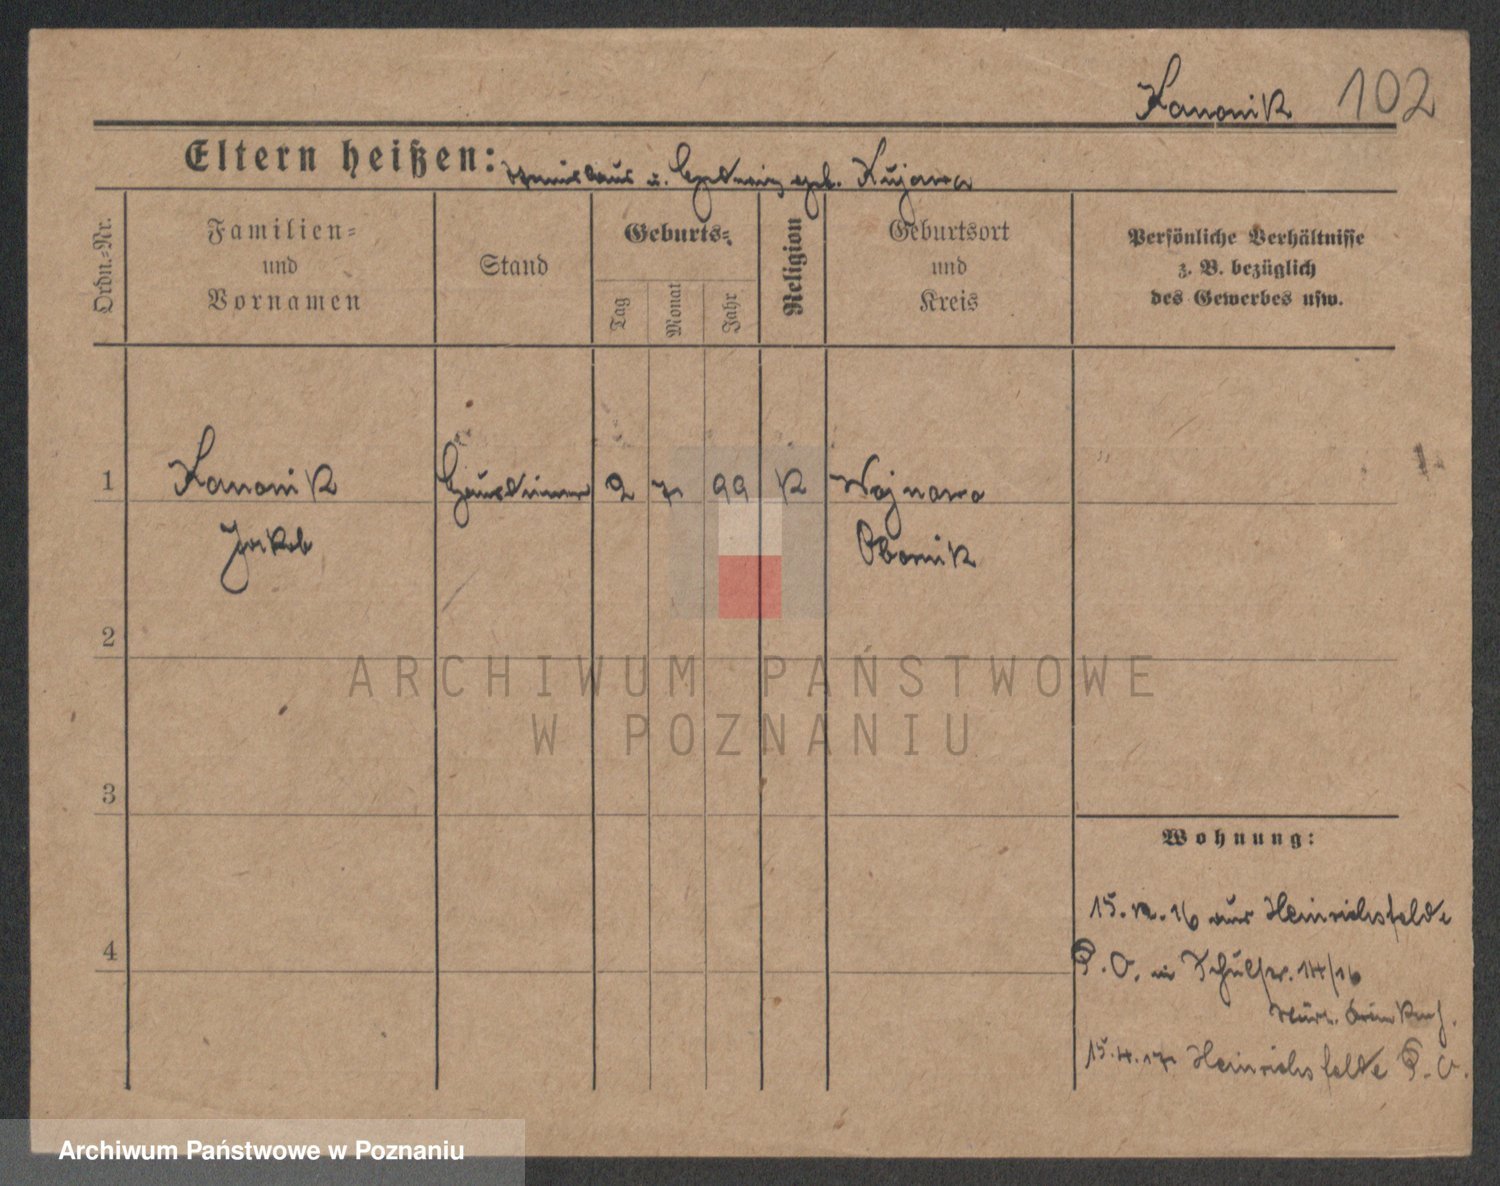 Kanonik 102
Eltern heißen: Stanislaus u. Hedwig geb. Kujawa
Ordn.-Nr.
Familien=
und
Vornamen
Stand
Geburts=
Tag
Monat
Jahr
Religion
Geburtsort
und
Kreis
Persönliche Verhältnisse
z. B. bezüglich
des Gewerbes usw.
1 Kanonik Hausdiener 2 7 99 K Wojnowo
Jakob Obornik
2
ARCHIWUM PAŃSTWOWE
W POZNANIU
3
Wohnung:
15. 12. 16 aus Heinrichsfelde
P. O. in Schulstr. 14/16
4
15. 4. 17 Heinrichsfelde P. O.
Archiwum Państwowe w Poznaniu